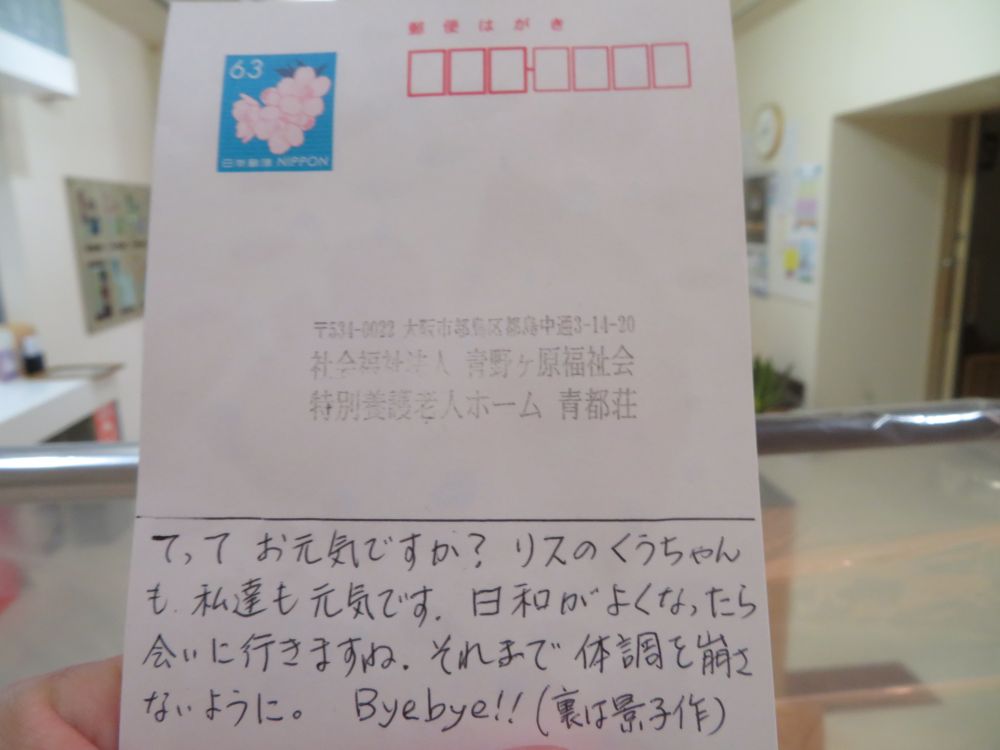 郵便はがき
63
日本郵便 NIPPON
〒534-0022 大阪市都島区都島中通3-14-20
社会福祉法人 青野ヶ原福祉会
特別養護老人ホーム 青都荘
てって お元気ですか? リスのくうちゃん
も、私達も元気です。日和がよくなったら
会いに行きますね。それまで体調を崩さ
ないように。 Byebye!! (裏は景子作)